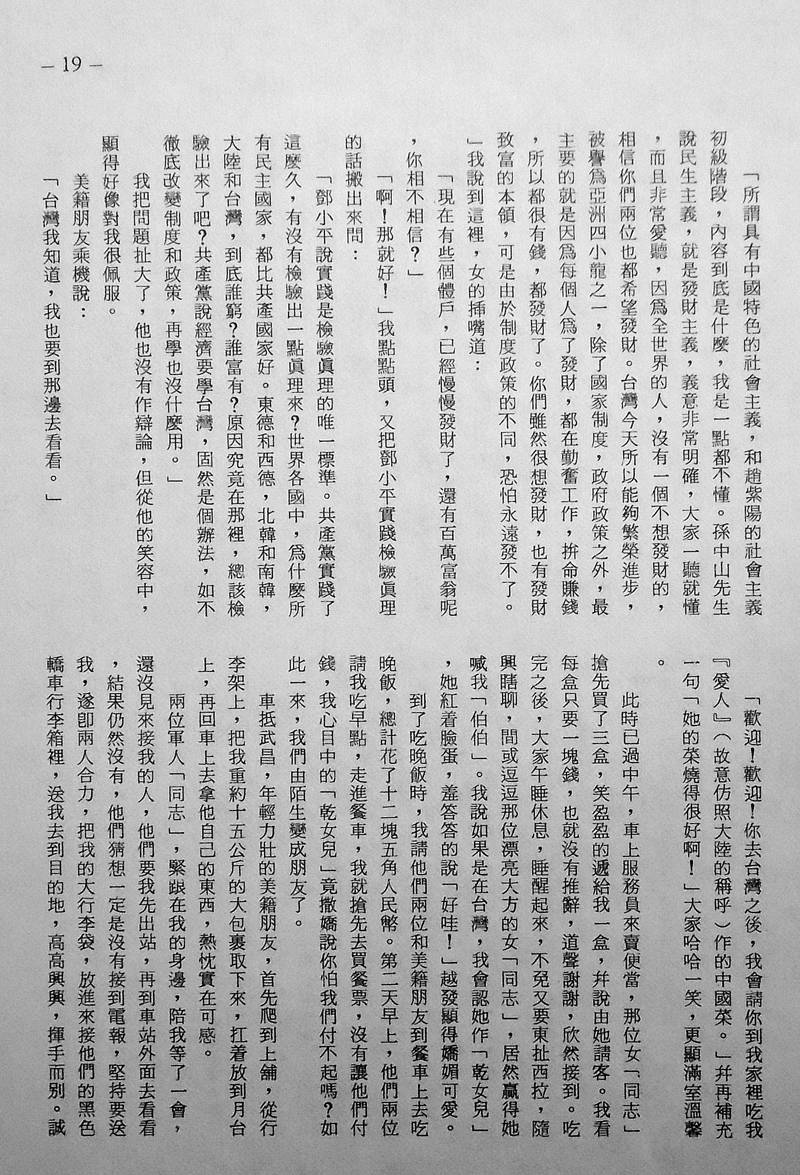 －19－
「所謂具有中國特色的社會主義，和趙紫陽的社會主義
初級階段，內容到底是什麼，我是一點都不懂。孫中山先生
說民生主義，就是發財主義，義意非常明確，大家一聽就懂
，而且非常愛聽，因爲全世界的人，沒有一個不想發財的，
相信你們兩位也都希望發財。台灣今天所以能夠繁榮進步，
被譽爲亞洲四小龍之一，除了國家制度，政府政策之外，最
主要的就是因爲每個人爲了發財，都在勤奮工作，拚命賺錢
，所以都很有錢，都發財了。你們雖然很想發財，也有發財
致富的本領，可是由於制度政策的不同，恐怕永遠發不了。
」我說到這裡，女的揷嘴道：
「現在有些個體戶，已經慢慢發財了，還有百萬富翁呢
，你相不相信？」
「啊！那就好！」我點點頭，又把鄧小平實踐檢驗眞理
的話搬出來問：
「鄧小平說實踐是檢驗眞理的唯一標準。共產黨實踐了
這麼久，有沒有檢驗出一點眞理來？世界各國中，爲什麼所
有民主國家，都比共產國家好。東德和西德，北韓和南韓，
大陸和台灣，到底誰窮？誰富有？原因究竟在那裡，總該檢
驗出來了吧？共產黨說經濟要學台灣，固然是個辦法，如不
徹底改變制度和政策，再學也沒什麼用。」
我把問題扯大了，他也沒有作辯論，但從他的笑容中，
顯得好像對我很佩服。
美籍朋友乘機說：
「台灣我知道，我也要到那邊去看看。」
「歡迎！歡迎！你去台灣之後，我會請你到我家裡吃我
『愛人』」（故意仿照大陸的稱呼）作的中國菜。」幷再補充
一句「她的菜燒得很好啊！」大家哈哈一笑，更顯滿室溫馨
。
此時已過中午，車上服務員來賣便當，那位女「同志」
搶先買了三盒，笑盈盈的遞給我一盒，幷說由她請客。我看
每盒只要一塊錢，也就沒有推辭，道聲謝謝，欣然接到。吃
完之後，大家午睡休息，睡醒起來，不免又要東扯西拉，隨
興瞎聊，間或逗逗那位漂亮大方的女「同志」，居然贏得她
喊我「伯伯」。我說如果是在台灣，我會認她作「乾女兒」
，她紅着臉蛋，羞答答的說「好哇！」越發顯得嬌媚可愛。
到了吃晚飯時，我請他們兩位和美籍朋友到餐車上去吃
晚飯，總計花了十二塊五角人民幣。第二天早上，他們兩位
請我吃早點，走進餐車，我就搶先去買餐票，沒有讓他們付
錢，我心目中的「乾女兒」竟撒嬌說你怕我們付不起嗎？如
此一來，我們由陌生變成朋友了。
車抵武昌，年輕力壯的美籍朋友，首先爬到上舖，從行
李架上，把我重約十五公斤的大包裹取下來，扛着放到月台
上，再回車上去拿他自己的東西，熱忱實在可感。
兩位軍人「同志」，緊跟在我的身邊，陪我等了一會，
還沒見來接我的人，他們要我先出站，再到車站外面去看看
，結果仍然沒有，他們猜想一定是沒有接到電報，堅持要送
我，遂卽兩人合力，把我的大行李袋，放進來接他們的黑色
轎車行李箱裡，送我去到目的地，高高興興，揮手而別。誠